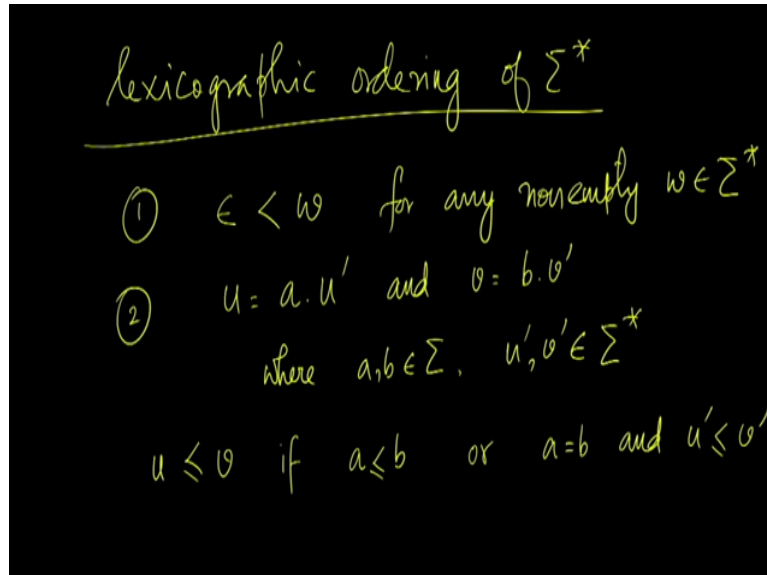 lexicographic ordering of Σ*
① ϵ < w for any nonempty w ∈ Σ*
② u = a.u' and v = b.v'
where a,b ∈ Σ, u',v' ∈ Σ*
u ⩽ v if a ⩽ b or a=b and u' ⩽ v'